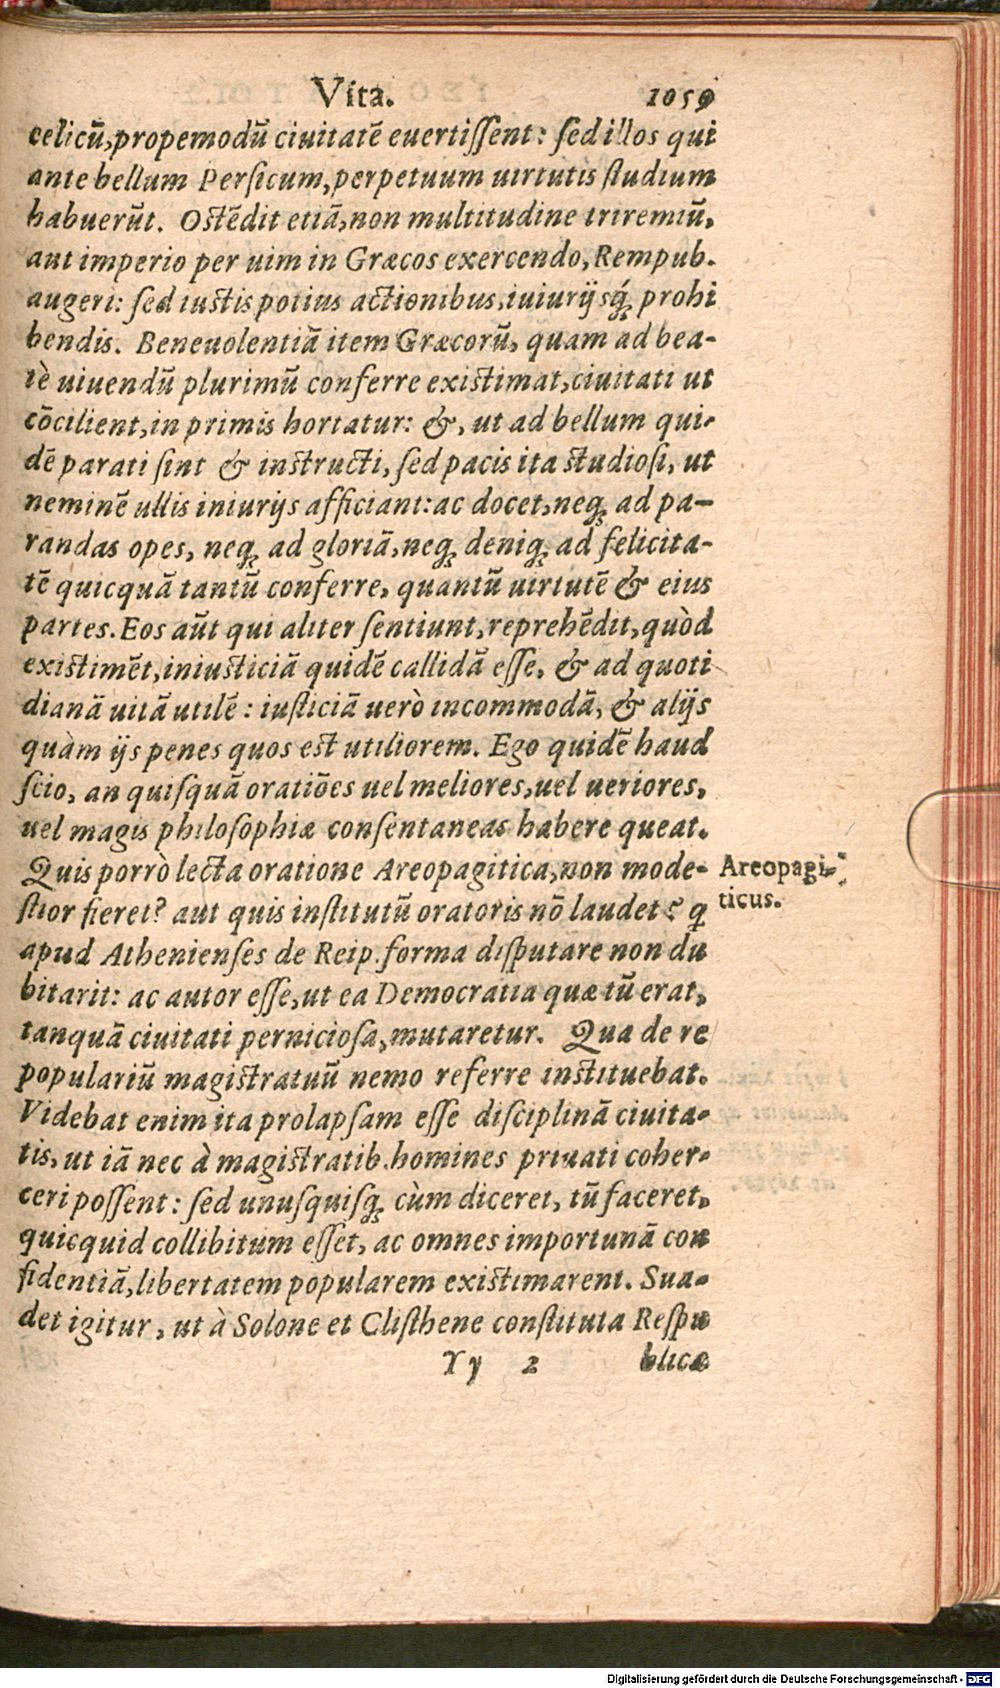 Vita. 1059
celicū, propemodū ciuitatē euertiſſent: ſed illos qui
ante bellum Perſicum, perpetuum uirtutis ſtudium
habuerūt. Oſtēdit etiā, non multitudine triremiū,
aut imperio per uim in Græcos exercendo, Rempub.
augeri: ſed iuſtis potius actionibus, iuiurijsq́; prohi
bendis. Beneuolentiā item Græcorū, quam ad bea-
tè uiuendū plurimū conferre exiſtimat, ciuitati ut
cōcilient, in primis hortatur: &, ut ad bellum qui-
dē parati ſint & inſtructi, ſed pacis ita ſtudioſi, ut
neminē ullis iniurijs afficiant: ac docet, neq; ad pa-
randas opes, neq; ad gloriā, neq; deniq; ad felicita-
tē quicquā tantū conferre, quantū uirtutē & eius
partes. Eos aūt qui aliter ſentiunt, reprehēdit, quòd
exiſtimēt, iniuſticiā quidē callidā eſſe, & ad quoti
dianā uitā utilē: iuſticiā uerò incommodā, & alijs
quàm ijs penes quos eſt utiliorem. Ego quidē haud
ſcio, an quiſquā oratiōes uel meliores, uel ueriores,
uel magis philoſophiæ conſentaneas habere queat.
Quis porrò lecta oratione Areopagitica, non mode-
ſtior fieret? aut quis inſtitutū oratoris nō laudet? q
apud Athenienſes de Reip. forma diſputare non du
bitarit: ac autor eſſe, ut ea Democratia quæ tū erat,
tanquā ciuitati pernicioſa, mutaretur. Qua de re
populariū magiſtratuū nemo referre inſtituebat.
Videbat enim ita prolapſam eſſe diſciplinā ciuita-
tis, ut iā nec à magiſtratib. homines priuati coher-
ceri poſſent: ſed unuſquiſq; cùm diceret, tū faceret,
quicquid collibitum eſſet, ac omnes importunā con
fidentiā, libertatem popularem exiſtimarent. Sua-
det igitur, ut à Solone et Cliſthene conſtituta Reſpu
Yy 2 blicæ
Areopagi-
ticus.
Digitalisierung gefördert durch die Deutsche Forschungsgemeinschaft - DFG